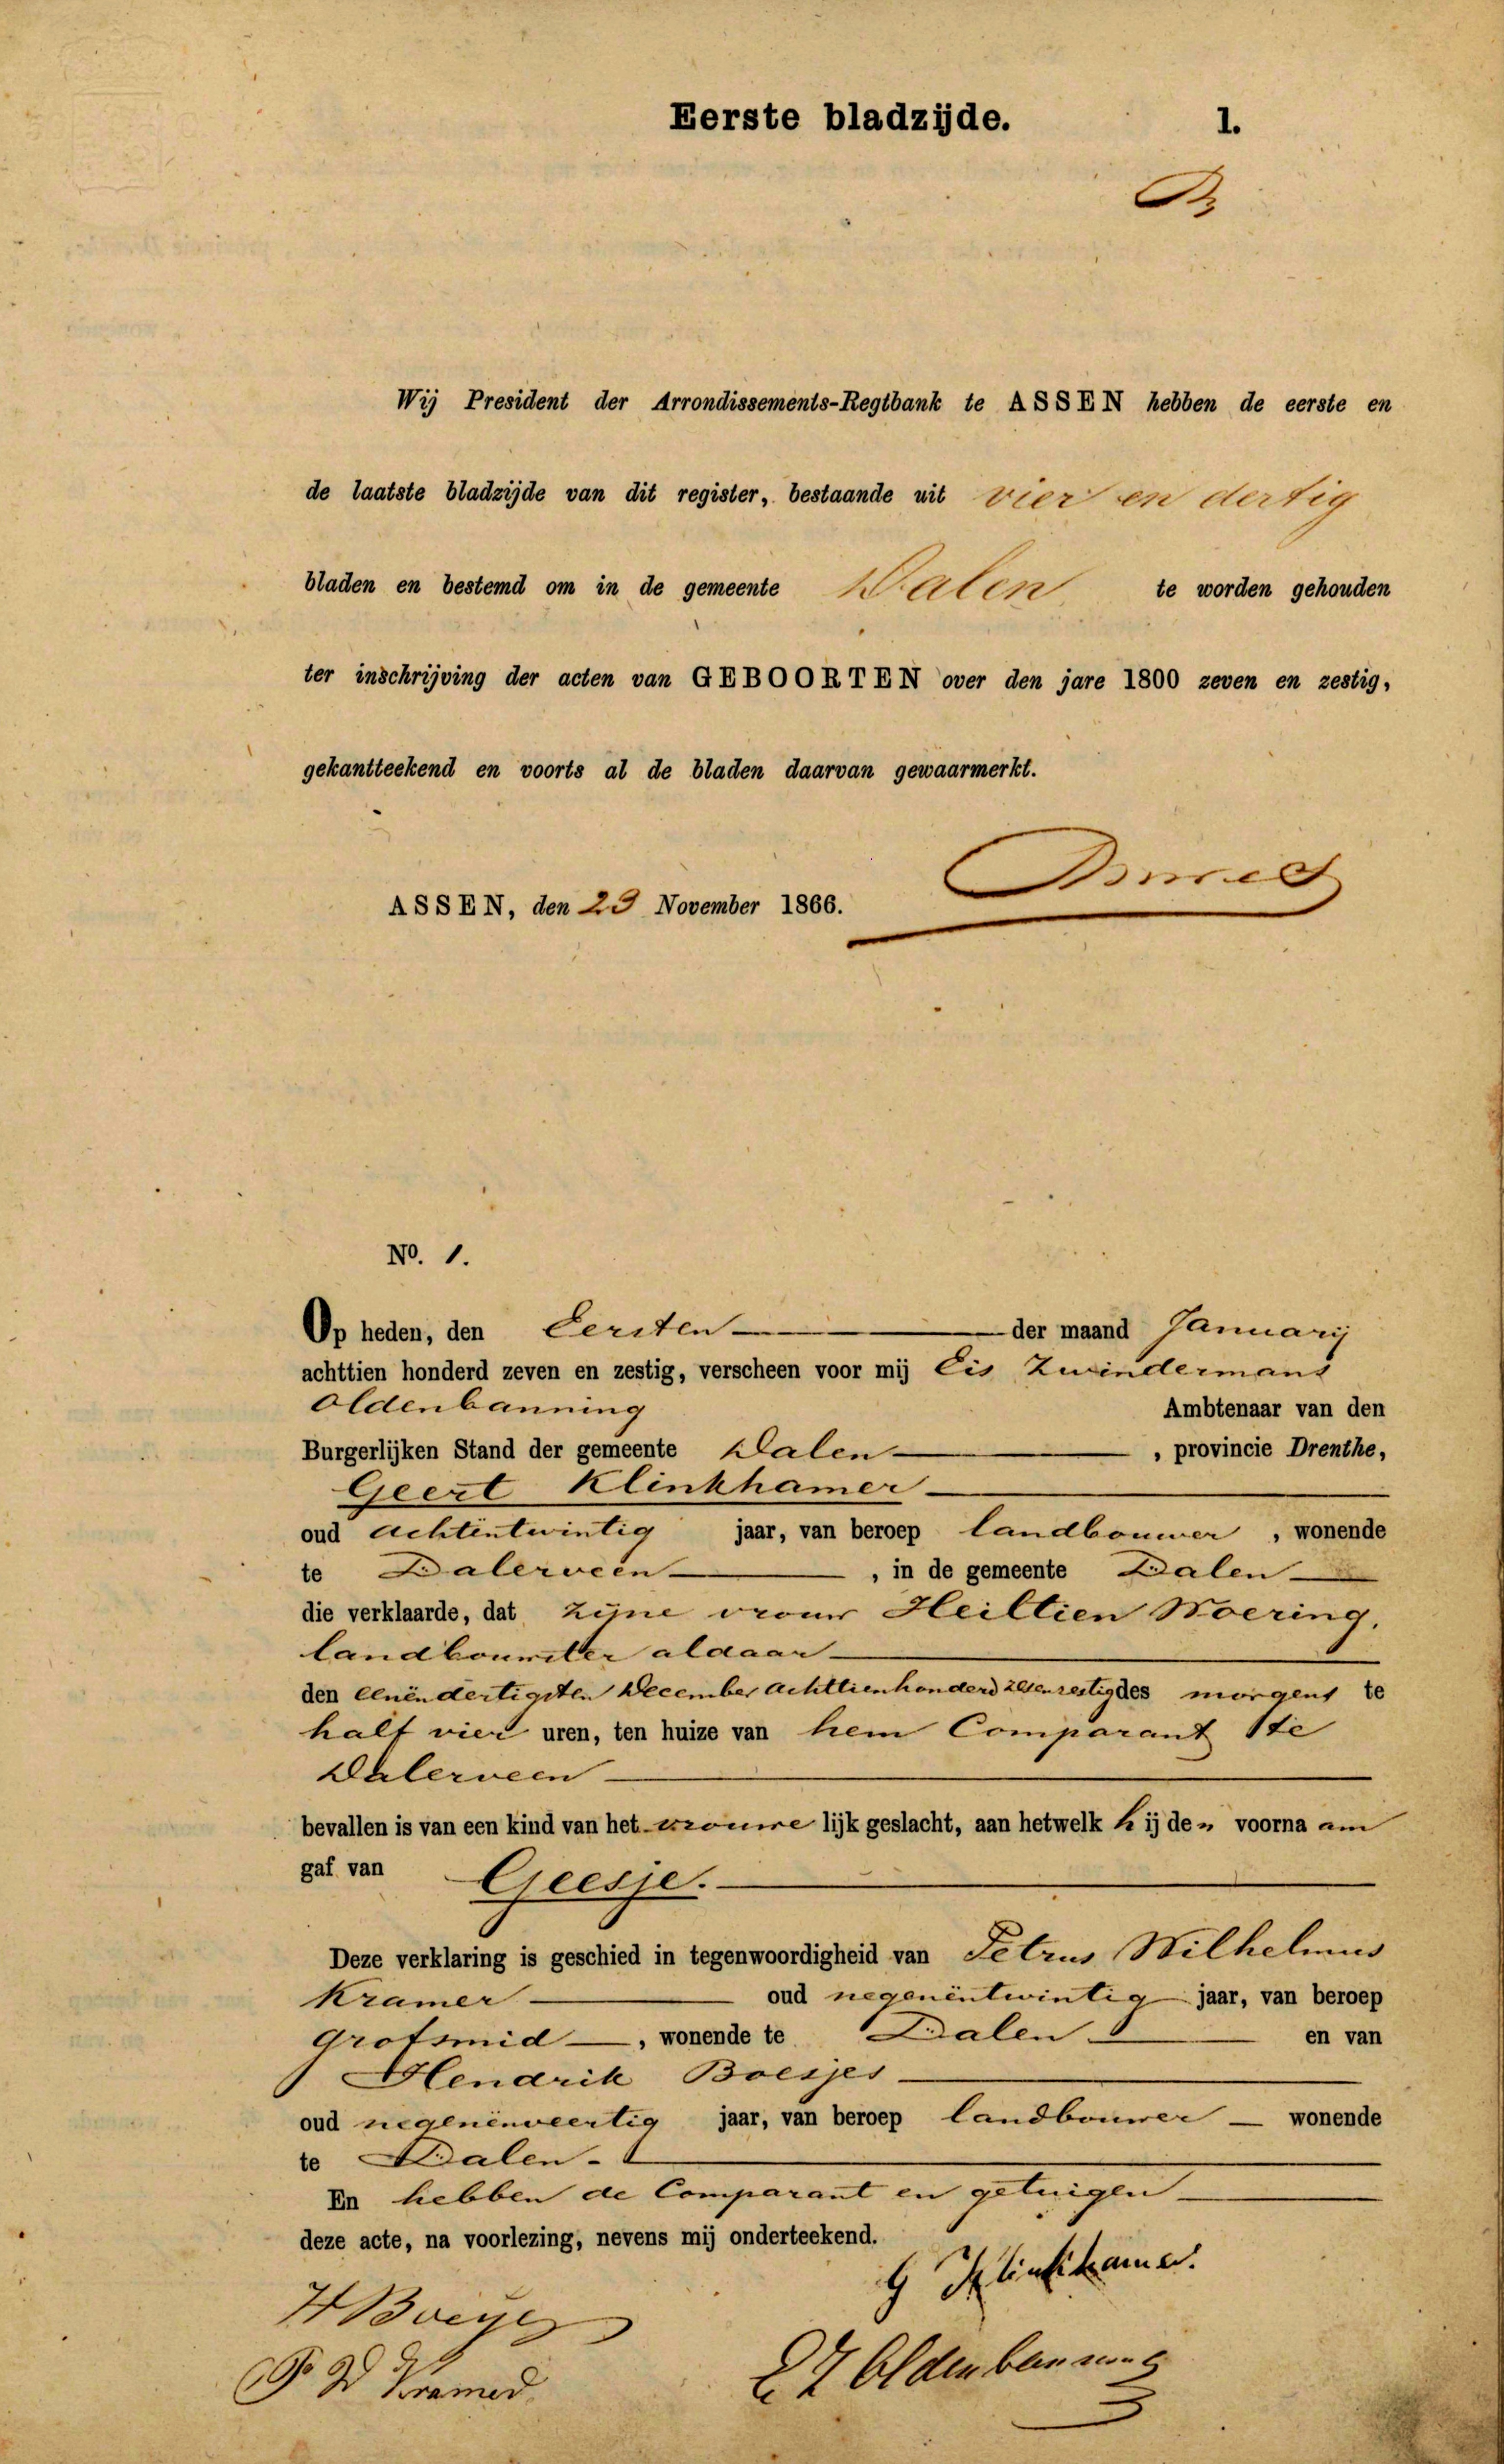 Eerste bladzijde. 1.
Wij President der Arrondissements-Regtbank te ASSEN hebben de eerste en
de laatste bladzijde van dit register, bestaande uit vier en dertig
bladen en bestemd om in de gemeente Dalen te worden gehouden
ter inschrijving der acten van GEBOORTEN over den jare 1800 zeven en zestig,
gekantteekend en voorts al de bladen daarvan gewaarmerkt.
ASSEN, den 23 November 1866.
No. 1.
Op heden, den Eersten der maand Januarij
achttien honderd zeven en zestig, verscheen voor mij Eis Zwindermans
Oldenbanning Ambtenaar van den
Burgerlijken Stand der gemeente Dalen, provincie Drenthe,
Geert Klinkhamer
oud achtentwintig jaar, van beroep landbouwer, wonende
te Dalerveen, in de gemeente Dalen
die verklaarde, dat zijne vrouw Heiltien Woering,
landbouwster aldaar
den eenendertigsten December Achttienhonderd zesenzestig des morgens te
half vier uren, ten huize van hem Comparant te
Dalerveen
bevallen is van een kind van het vrouwelijk geslacht, aan hetwelk hij den voornaam
gaf van Geesje.
Deze verklaring is geschied in tegenwoordigheid van Petrus Wilhelmus
Kramer oud negenëntwintig jaar, van beroep
grofsmid, wonende te Dalen en van
Hendrik Boesjes
oud negenënveertig jaar, van beroep landbouwer wonende
te Dalen.
En hebben de Comparant en getuigen
deze acte, na voorlezing, nevens mij onderteekend.
G Klinkhamer.
H Boesjes
P W Kramer
E Z Oldenbanning